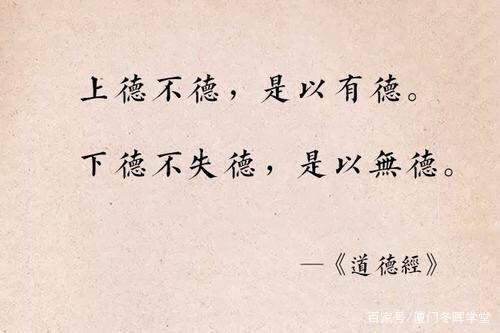 上德不德，是以有德。
下德不失德，是以無德。
—《道德經》
百家号/厦门冬晖学堂